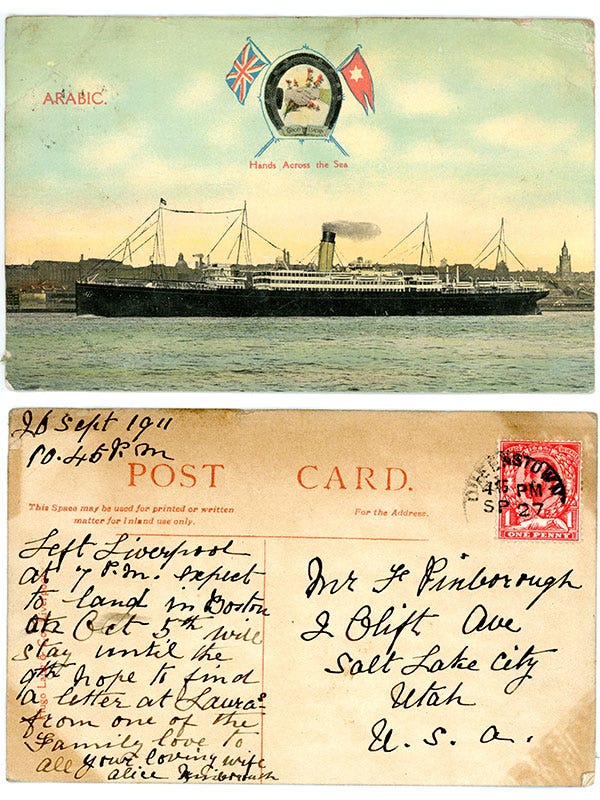 ARABIC.
Hands Across the Sea
26 Sept 1911
10.45 P.M
POST CARD.
This Space may be used for printed or written
matter for Inland use only.
For the Address.
QUEENSTOWN
4 15 PM
SP 27
ONE PENNY
Left Liverpool
at 7 P.M. expect
to land in Boston
Oct 5th will
stay until the
9th hope to find
a letter at Lauras
from one of the
Family love to
all your loving wife
Alice Pinborough
Mr F Pinborough
2 Clift Ave
Salt Lake City
Utah
U. S. A.